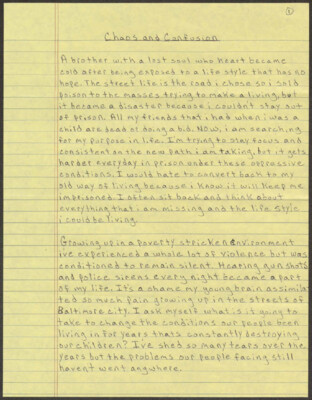 1
Chaos and Confusion
A brother with a lost soul who heart became
cold after being exposed to a life style that has no
hope. The street life is the road i chose so i sold
poison to the masses trying to make a living, but
it became a disaster because i couldnt stay out
of prison. All my friends that i had when i was a
child are dead or doing a bid. Now, i am searching
for my purpose in life. Im trying to stay focus and
consistent on the new path i am taking, but it gets
harder everyday in prison under these oppressive
conditions. I would hate to convert back to my
old way of living because i know it will keep me
imprisoned. I often sit back and think about
everything that i am missing and the life style
i could be living.
Growing up in a poverty stricken environment
ive experienced a whole lot of violence but was
conditioned to remain silent. Hearing gun shots
and police sirens every night became a part
of my life. It's a shame my young brain assimila
ted so much pain growing up in the streets of
Baltimore city. I ask myself what is is going to
take to change the conditions our people been
living in for years thats constantly destroying
our children? I've shed so many tears over the
years but the problems our people facing still
havent went anywhere.